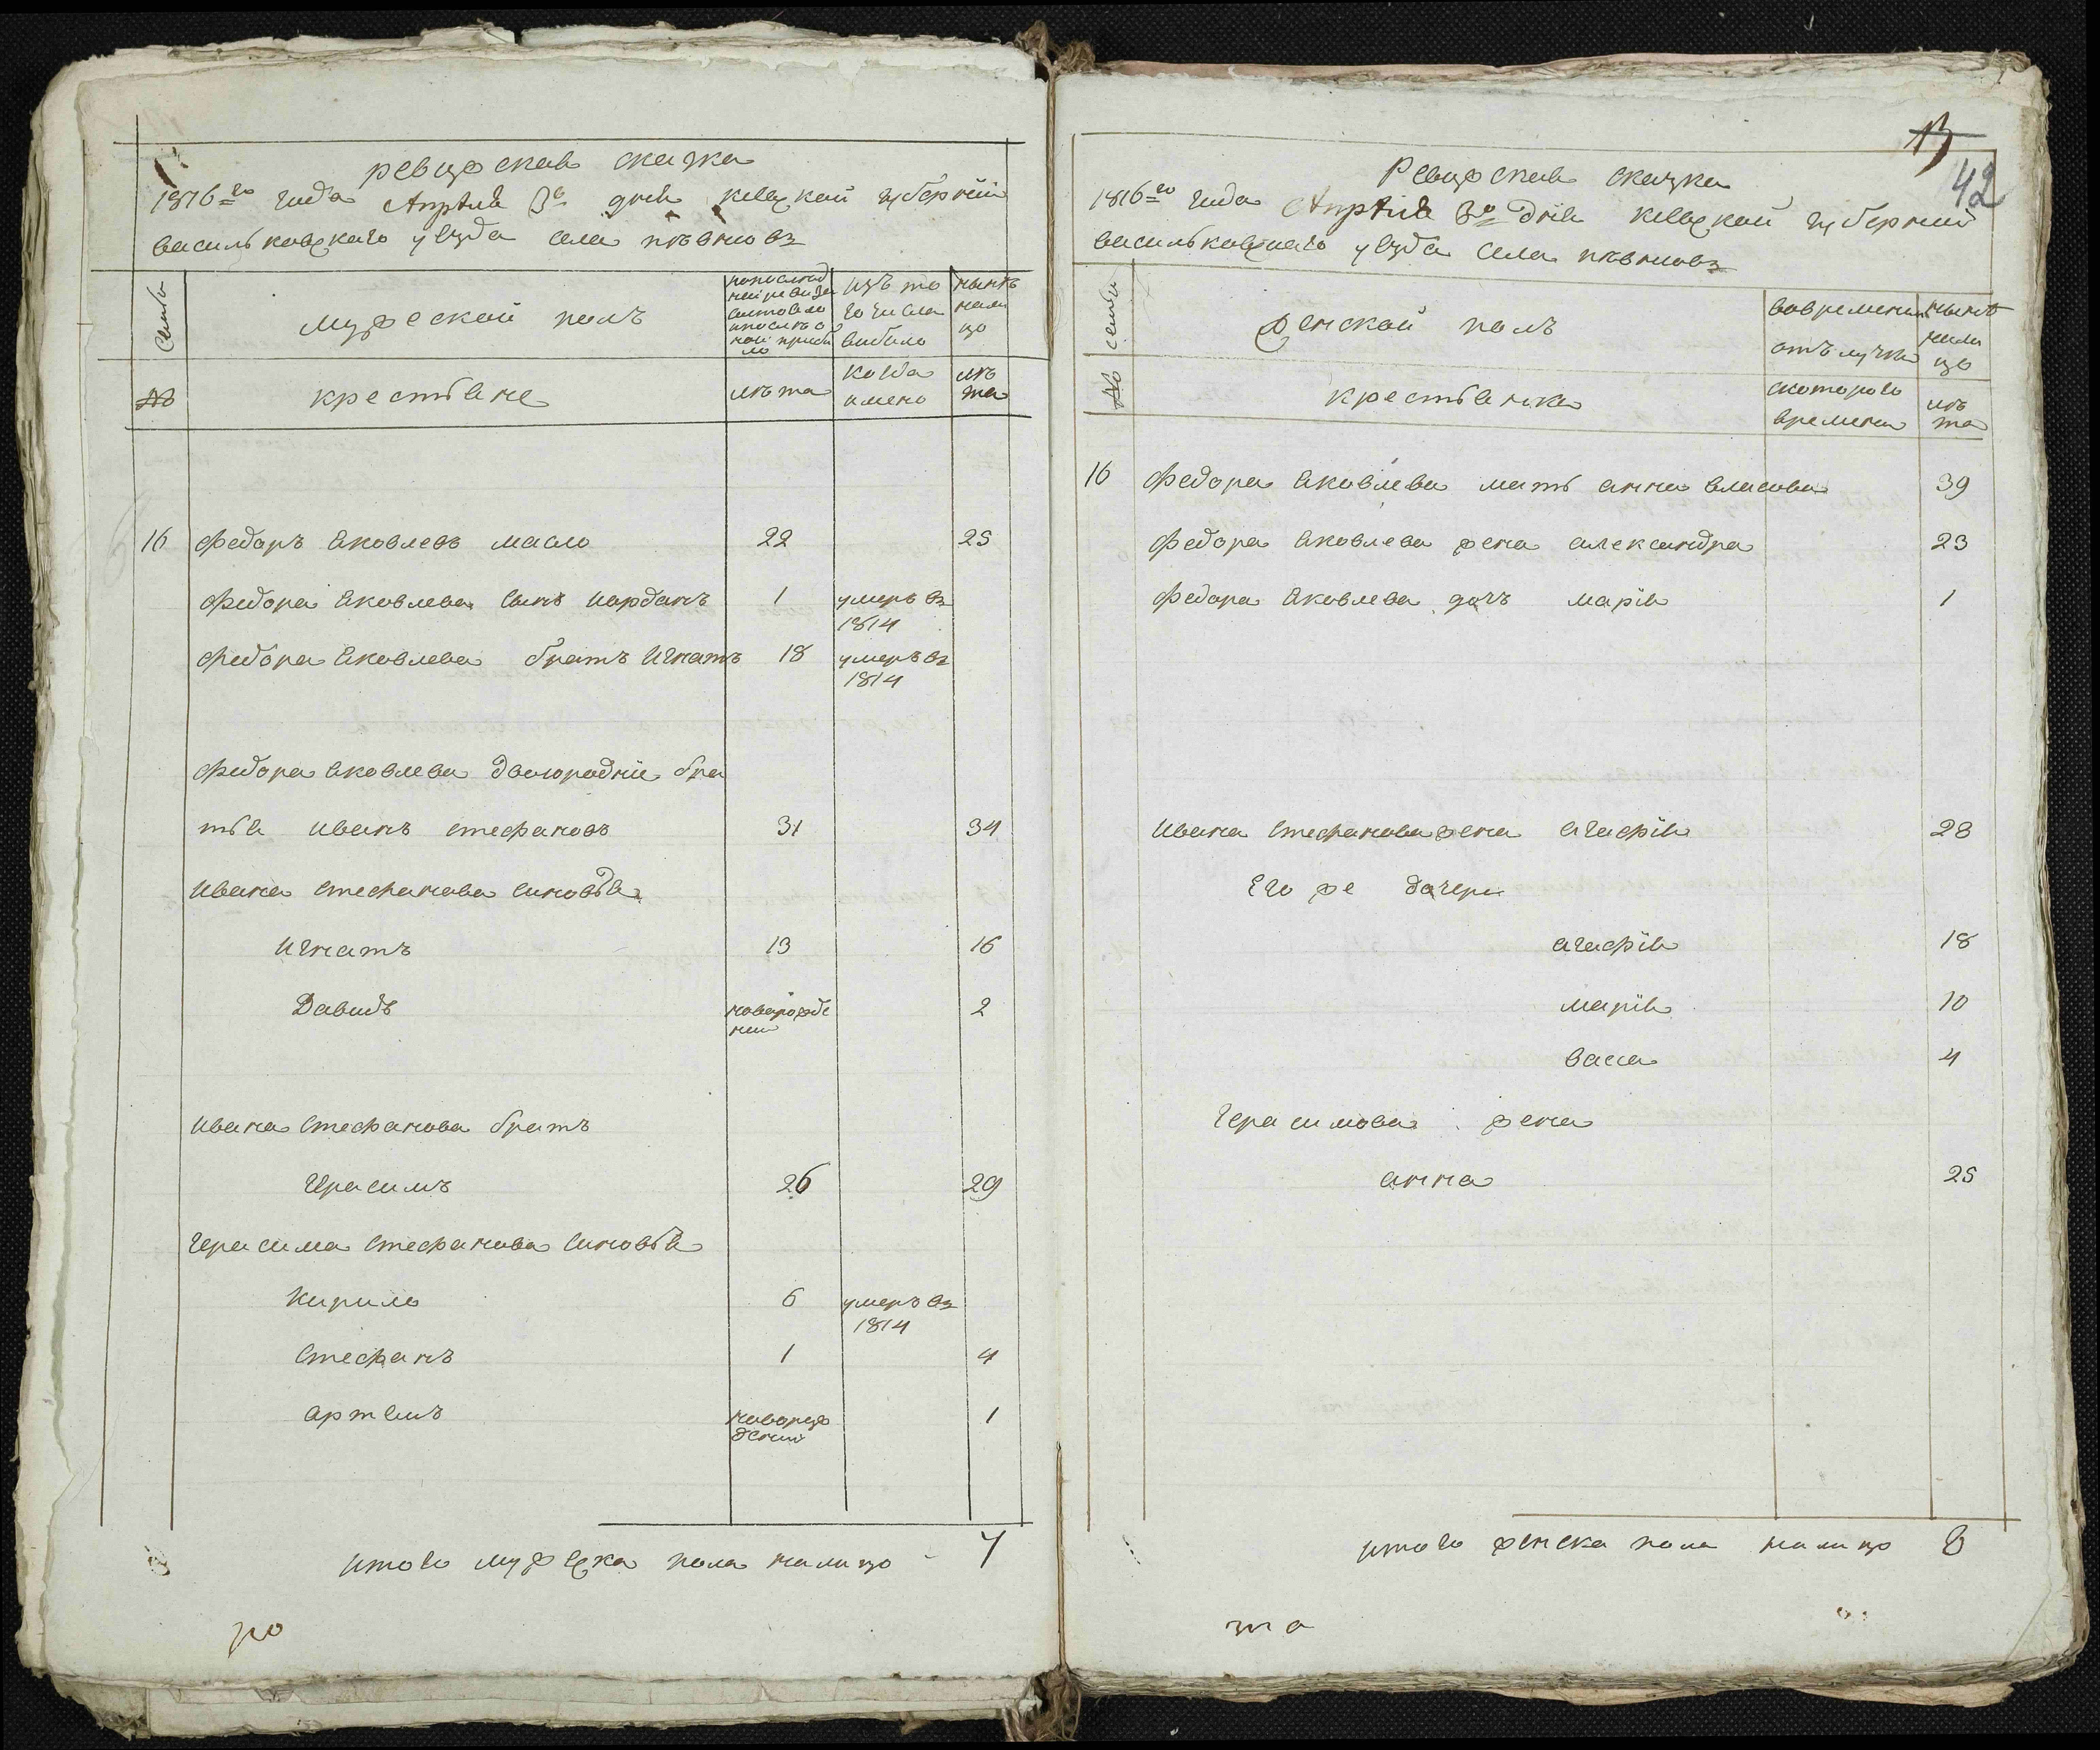 ревизская сказка
1816го года Апреля 3го дня киевской губернии
васильковского уезда села
Семья
мужеской полъ
изъ то
го числа
выбыло
ныне
нали
цо
№
крестьяне
лѣта
когда
имено
лѣ
та
16 Федоръ Яковлевъ масло 22 25
Федора Яковлева сынъ иорданъ 1 умеръ въ
1814
Федора Яковлева братъ Игнатъ 18 умеръ въ
1814
Федора Яковлева двоюродніе бра
тья иванъ стефановъ 31 34
Ивана стефанова синовья
Игнатъ 13 16
Давидъ новорожде 2
ний
Ивана Стефанова братъ
Герасимъ 26 29
Герасима Стефанова синовья
Кирило 6 умеръ въ
1814
Стефанъ 1 4
артемъ новорож 1
дений
итого мужеска пола налицо 7
ро
13
42
Ревизская сказка
1816го года Апреля 3го дня киевской губерний
васильковского уезда села
семья
женской полъ
вовременной
отълучки
ныне
нали
цо
№
крестьянки
скоторого
времени
лѣ
та
16 Федора Яковлева мать анна власова 39
Федора Яковлева жена александра 23
Федора Яковлева дочь марія 1
Ивана Стефанова жена агафія 28
Его же дочери
агафія 18
марія 10
васса 4
Герасимова жена
анна 25
итого женска пола налицо 8
та